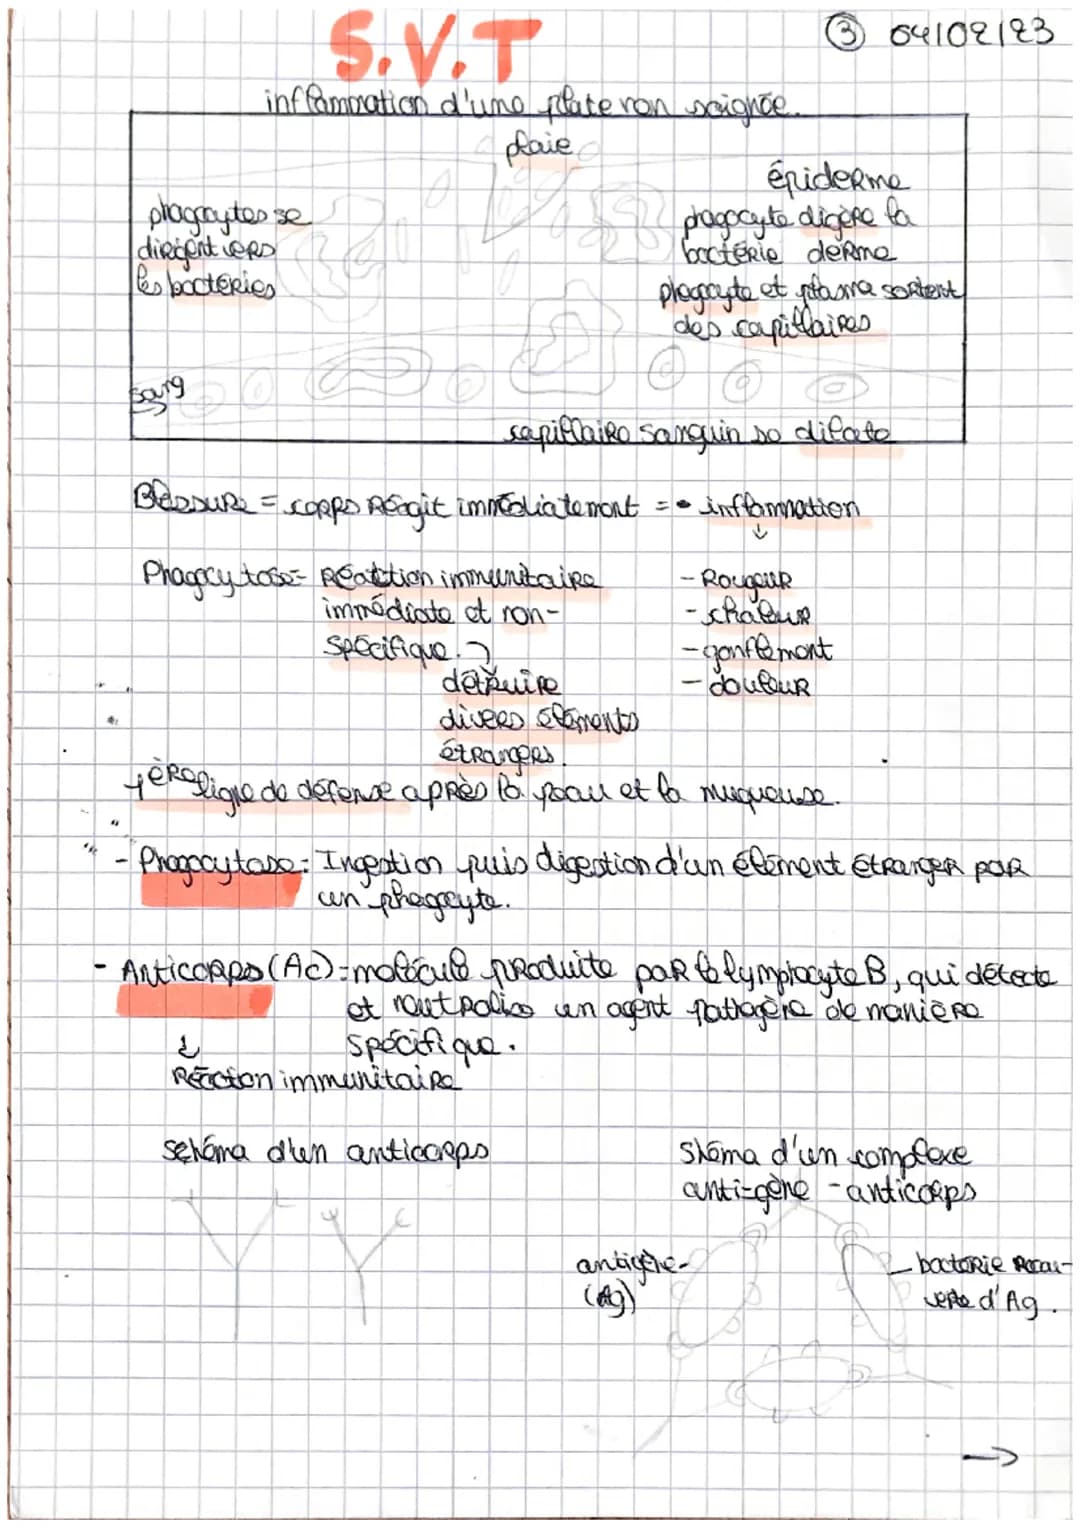 S.V.T
③ 04/02/23
inflammation d'une plaie non soignée.
plaie
épiderme
phagocytes se
dirigent vers
les bactéries
phagocyte digère la
bactérie derme
phagocyte et plasma sortent
des capillaires
sang
capillaire sanguin se dilate
Blessure = corps Réagit immédiatement = • inflammation
↓
Phagocytose = Réaction immunitaire
immédiate et non-
Spécifique.
détruire
divers éléments
étrangers.
- Rougeur
- chaleur
- gonflement
- douleur
1ère ligne de défense après la peau et la muqueuse.
- Phagocytose : Ingestion puis digestion d'un élément étranger par
un phagocyte.
- Anticorps (Ac) = molécule produite par le lymphocyte B, qui détecte
et neutralise un agent pathogène de manière
Spécifique.
↓
Réaction immunitaire
Schéma d'un anticorps
Shéma d'un complexe
anti-gène - anticorps
antigène -
(Ag)
- bactérie recou-
verte d'Ag.
→